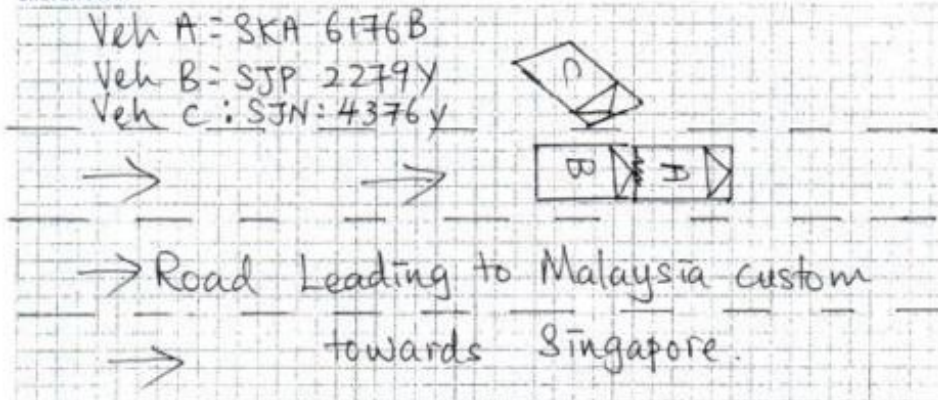 Veh A = SKA 6176B
Veh B = SJP 2279Y
Veh C : SJN : 4376y
C
B A
Road Leading to Malaysia custom
towards Singapore.